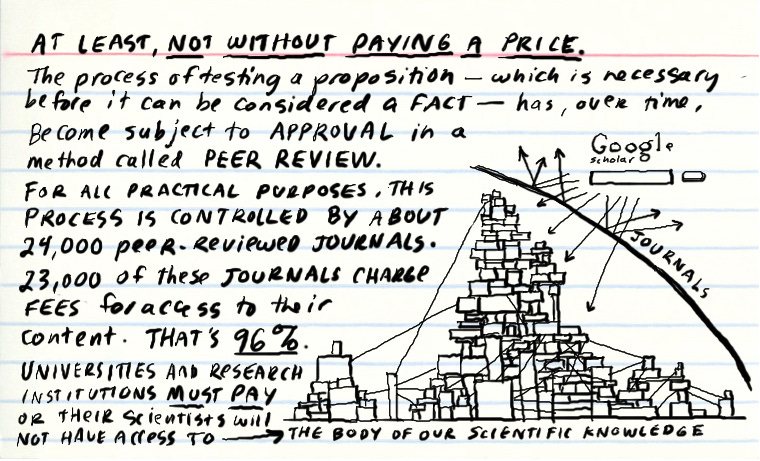 AT LEAST, NOT WITHOUT PAYING A PRICE.
The process of testing a proposition — which is necessary
before it can be considered a FACT — has, over time,
Become subject to APPROVAL in a
method called PEER REVIEW.
FOR ALL PRACTICAL PURPOSES, THIS
PROCESS IS CONTROLLED BY ABOUT
24,000 peer-reviewed JOURNALS.
23,000 of these JOURNALS CHARGE
FEES for access to their
content. THAT'S 96%.
UNIVERSITIES AND RESEARCH
INSTITUTIONS MUST PAY
OR THEIR Scientists will
NOT HAVE ACCESS TO
THE BODY OF OUR SCIENTIFIC KNOWLEDGE
Google
scholar
JOURNALS